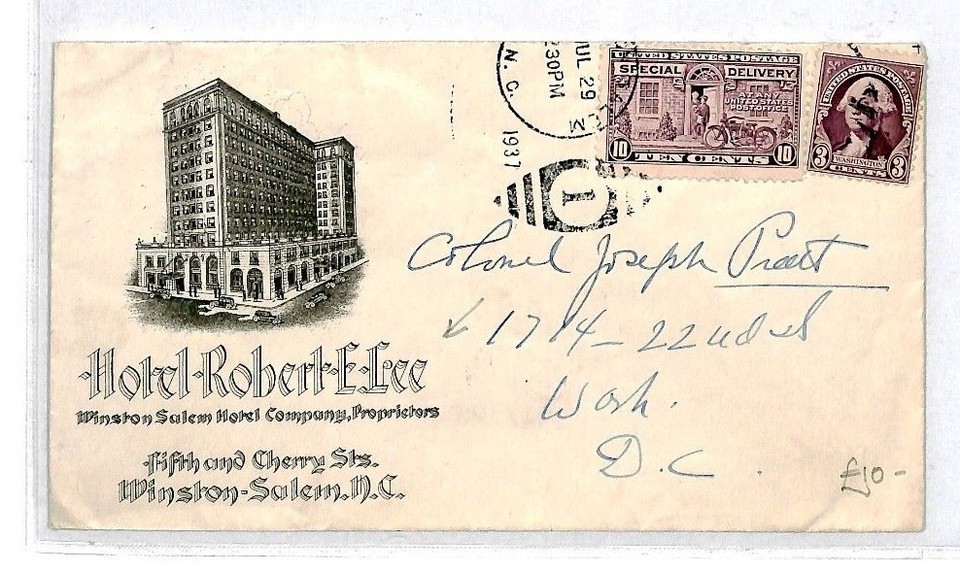 N. C.
JUL 29
230PM
1937
1
UNITED STATES POSTAGE
SPECIAL DELIVERY
AT ANY
UNITED STATES
POST OFFICE
10 TEN CENTS 10
UNITED STATES POSTAGE
WASHINGTON
3 CENTS 3
Colonel Joseph Pratt
1714 - 22nd St
Wash.
D.C.
Hotel Robert E. Lee
Winston Salem Hotel Company, Proprietors
Fifth and Cherry Sts.
Winston-Salem, N.C.
£10-